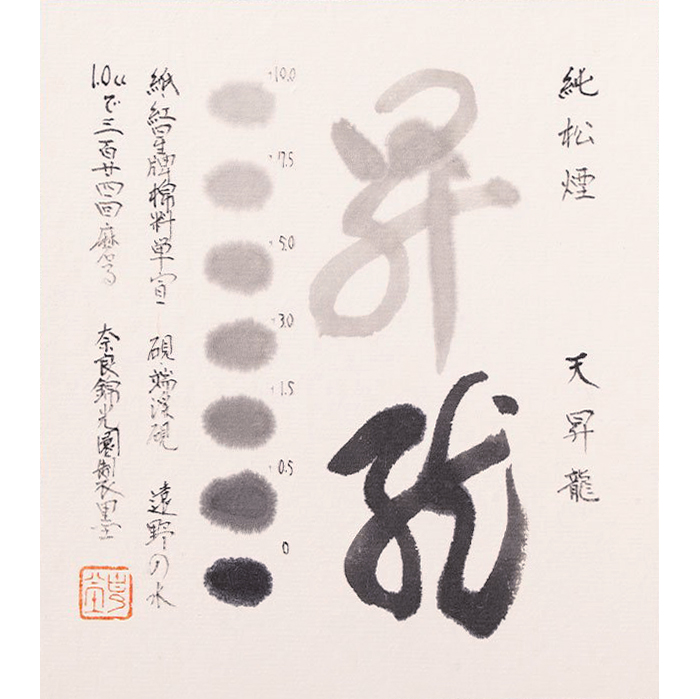 純松煙 天昇龍
昇龍
+10.0
+7.5
+5.0
+3.0
+1.5
+0.5
0
紙紅星牌棉料単宣 硯・端渓硯 遠野の水
1.0ccで三百廿四回磨る 奈良錦光園製墨